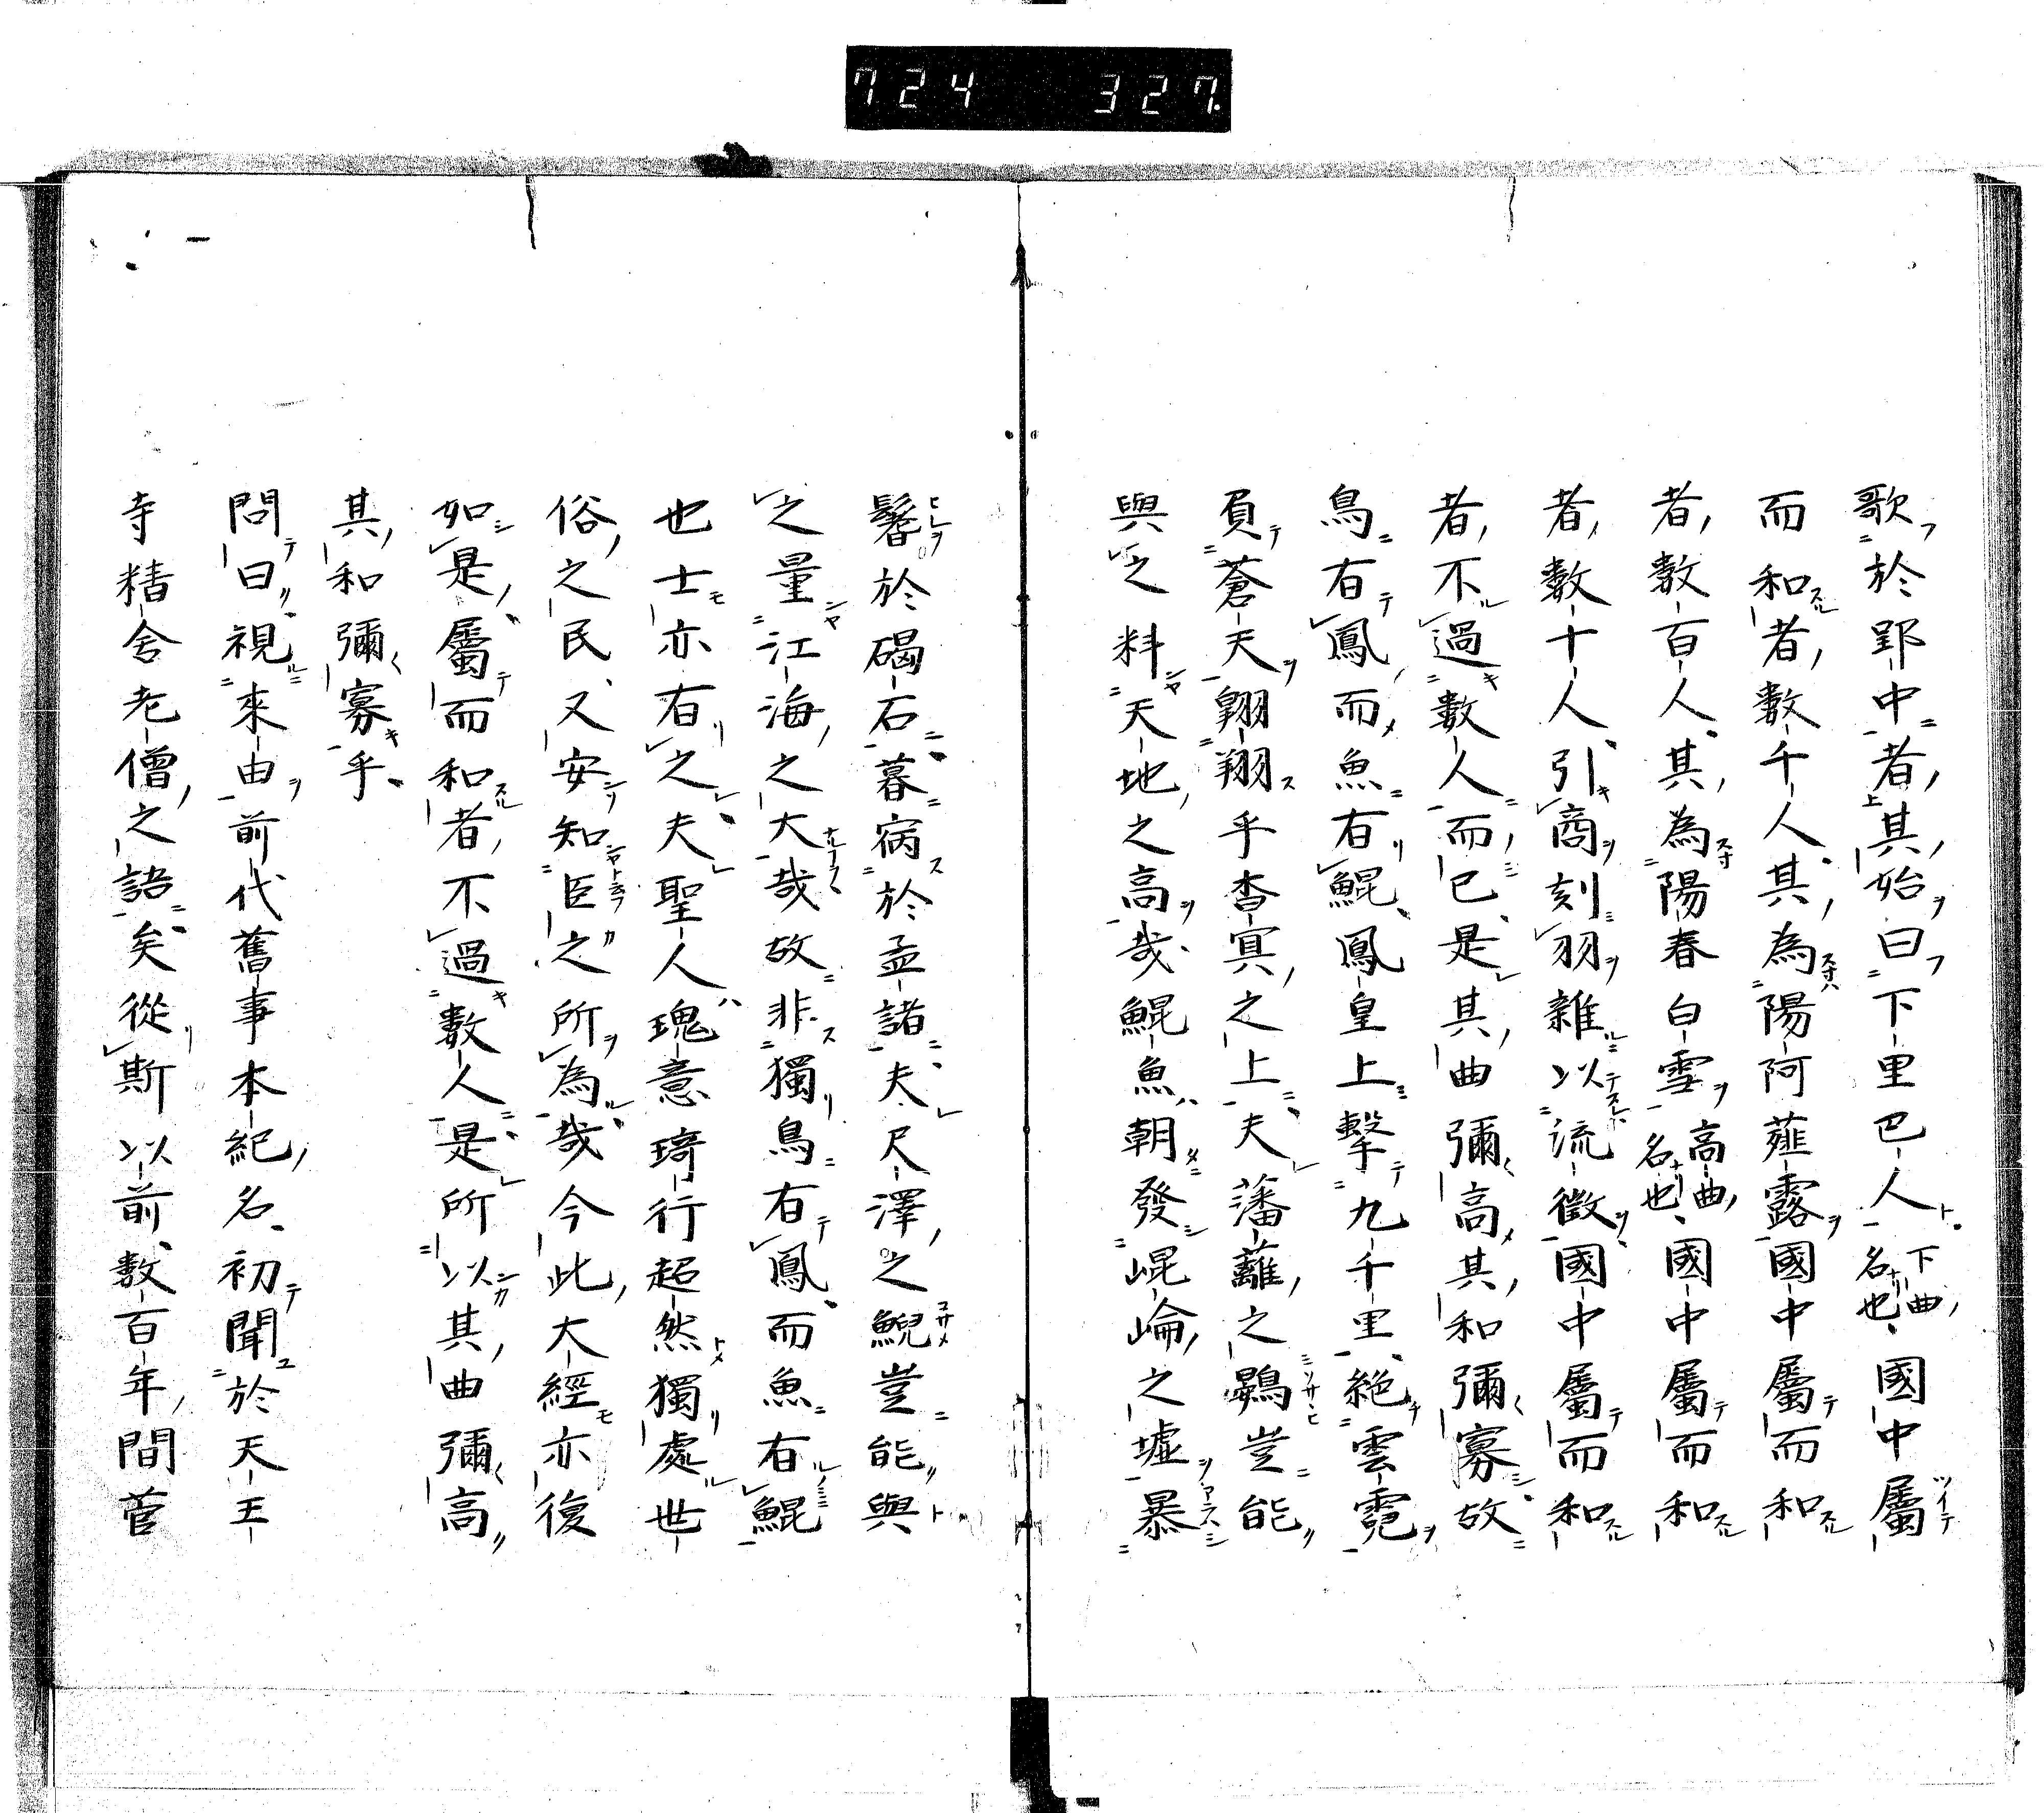 724 327
歌於郢中者其始曰下里巴人下曲名也國中屬
而和者數千人其為陽阿薤露國中屬而和
者數百人其為陽春白雪高曲名也國中屬而和
者數十人引商刻羽雜以流徵國中屬而和
者不過數人而已是其曲彌高其和彌寡故
鳥有鳳而魚有鯤鳳皇上擊九千里絶雲霓
負蒼天翱翔乎杳冥之上夫藩蘺之鷃豈能
與之料天地之高哉鯤魚朝發崐崘之墟暴
鬐於碣石暮宿於孟諸夫尺澤之鯢豈能與
之量江海之大哉故非獨鳥有鳳而魚有鯤
也士亦有之夫聖人瑰意琦行超然獨處世
俗之民又安知臣之所為哉今此大經亦復
如是屬而和者不過數人是所以其曲彌高
其和彌寡乎
問曰視來由前代舊事本紀名初聞於天王
寺精舍老僧之語矣從斯以前數百年間菅